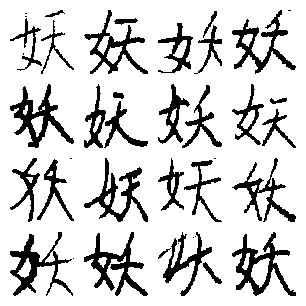 妖妖妖妖
妖妖妖妖
妖妖妖妖
妖妖妖妖